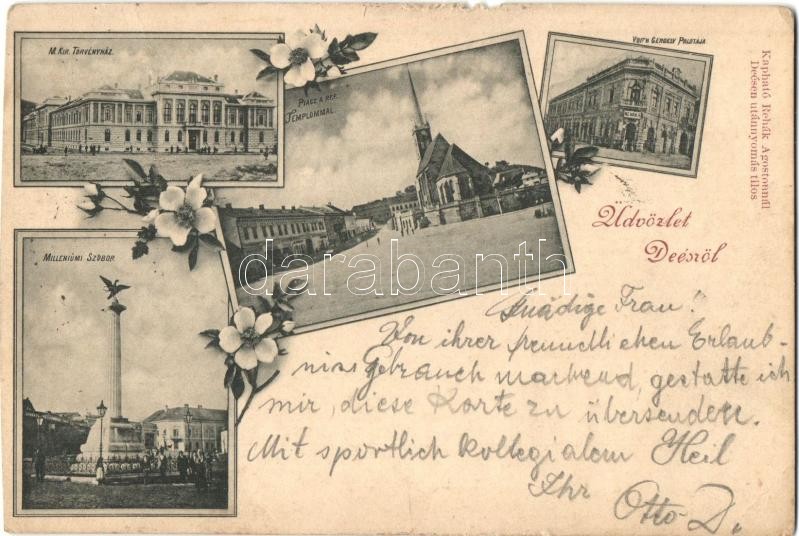 M. Kir. Törvényház.
Piacz a ref.
Templommal.
Voith Gergely Palotája
Milleniumi Szobor.
Kapható Rehák Agostonnál
Deésen utánnyomás tilos
Üdvözlet
Deésről
darabanth.com
Gnädige Frau!
Von ihrer freundlichen Erlaub-
niss Gebrauch machend, gestatte ich
mir, diese Karte zu übersenden.
Mit sportlich kollegialem Heil
Ihr
Otto D.